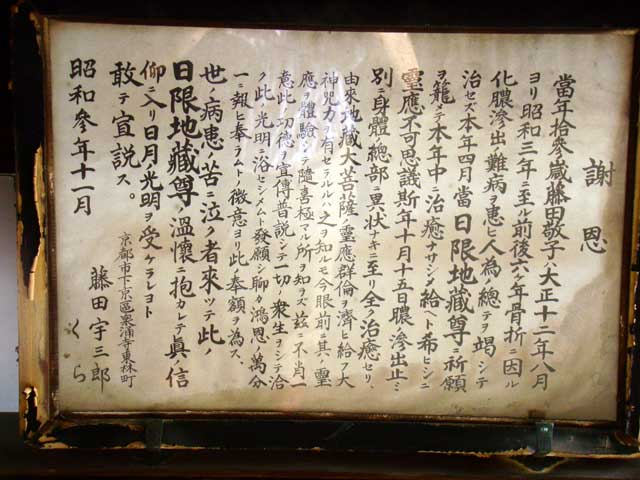 謝恩
當年拾參歳藤田敬子ハ大正十二年八月
ヨリ昭和三年ニ至ル前後六ヶ年骨折ニ因ル
化膿滲出難病ヲ患ヒ人為ノ總テヲ竭シテ
治セズ本年四月當日限地藏尊ニ祈願
ヲ籠メテ本年中ニ治癒ナサシメ給ヘト希ヒシニ
靈應不可思議斯年十月十五日膿滲出止ミ
別ニ身體總部ニ異状ナキニ至リ全ク治癒セリ、
由來地藏大菩薩ノ靈應群倫ヲ濟ヒ給フ大
神咒力ヲ有セラルルハ之ヲ知ルモ今眼前ニ其ノ靈
應ヲ體驗シテ隨喜極マル所ヲ知ラズ茲ニ不肖一
意此ノ功德ヲ宣傳普説シテ一切衆生ヲシテ洽
ク此ノ光明ニ浴セシメムト發願シ聊カ鴻恩ノ萬分
一ニ報ヒ奉ラムトノ微意ヨリ此ノ奉額ヲ為ス、
世ノ病患ノ苦ニ泣ク者來ツテ此ノ
日限地藏尊ノ溫懷ニ抱カレテ真ノ信
仰ニ入リ日月光明ヲ受ケラレヨト
敢テ宣説ス。
京都市下京區泉涌寺東林町
藤田宇三郎
くら
昭和參年十一月